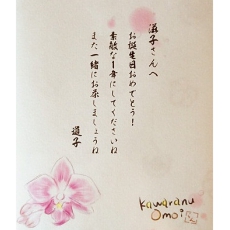 滋子さんへ
お誕生日おめでとう！
素敵な1年にしてくださいね
また一緒にお茶しましょうね
道子
Kawaranu
Omoi